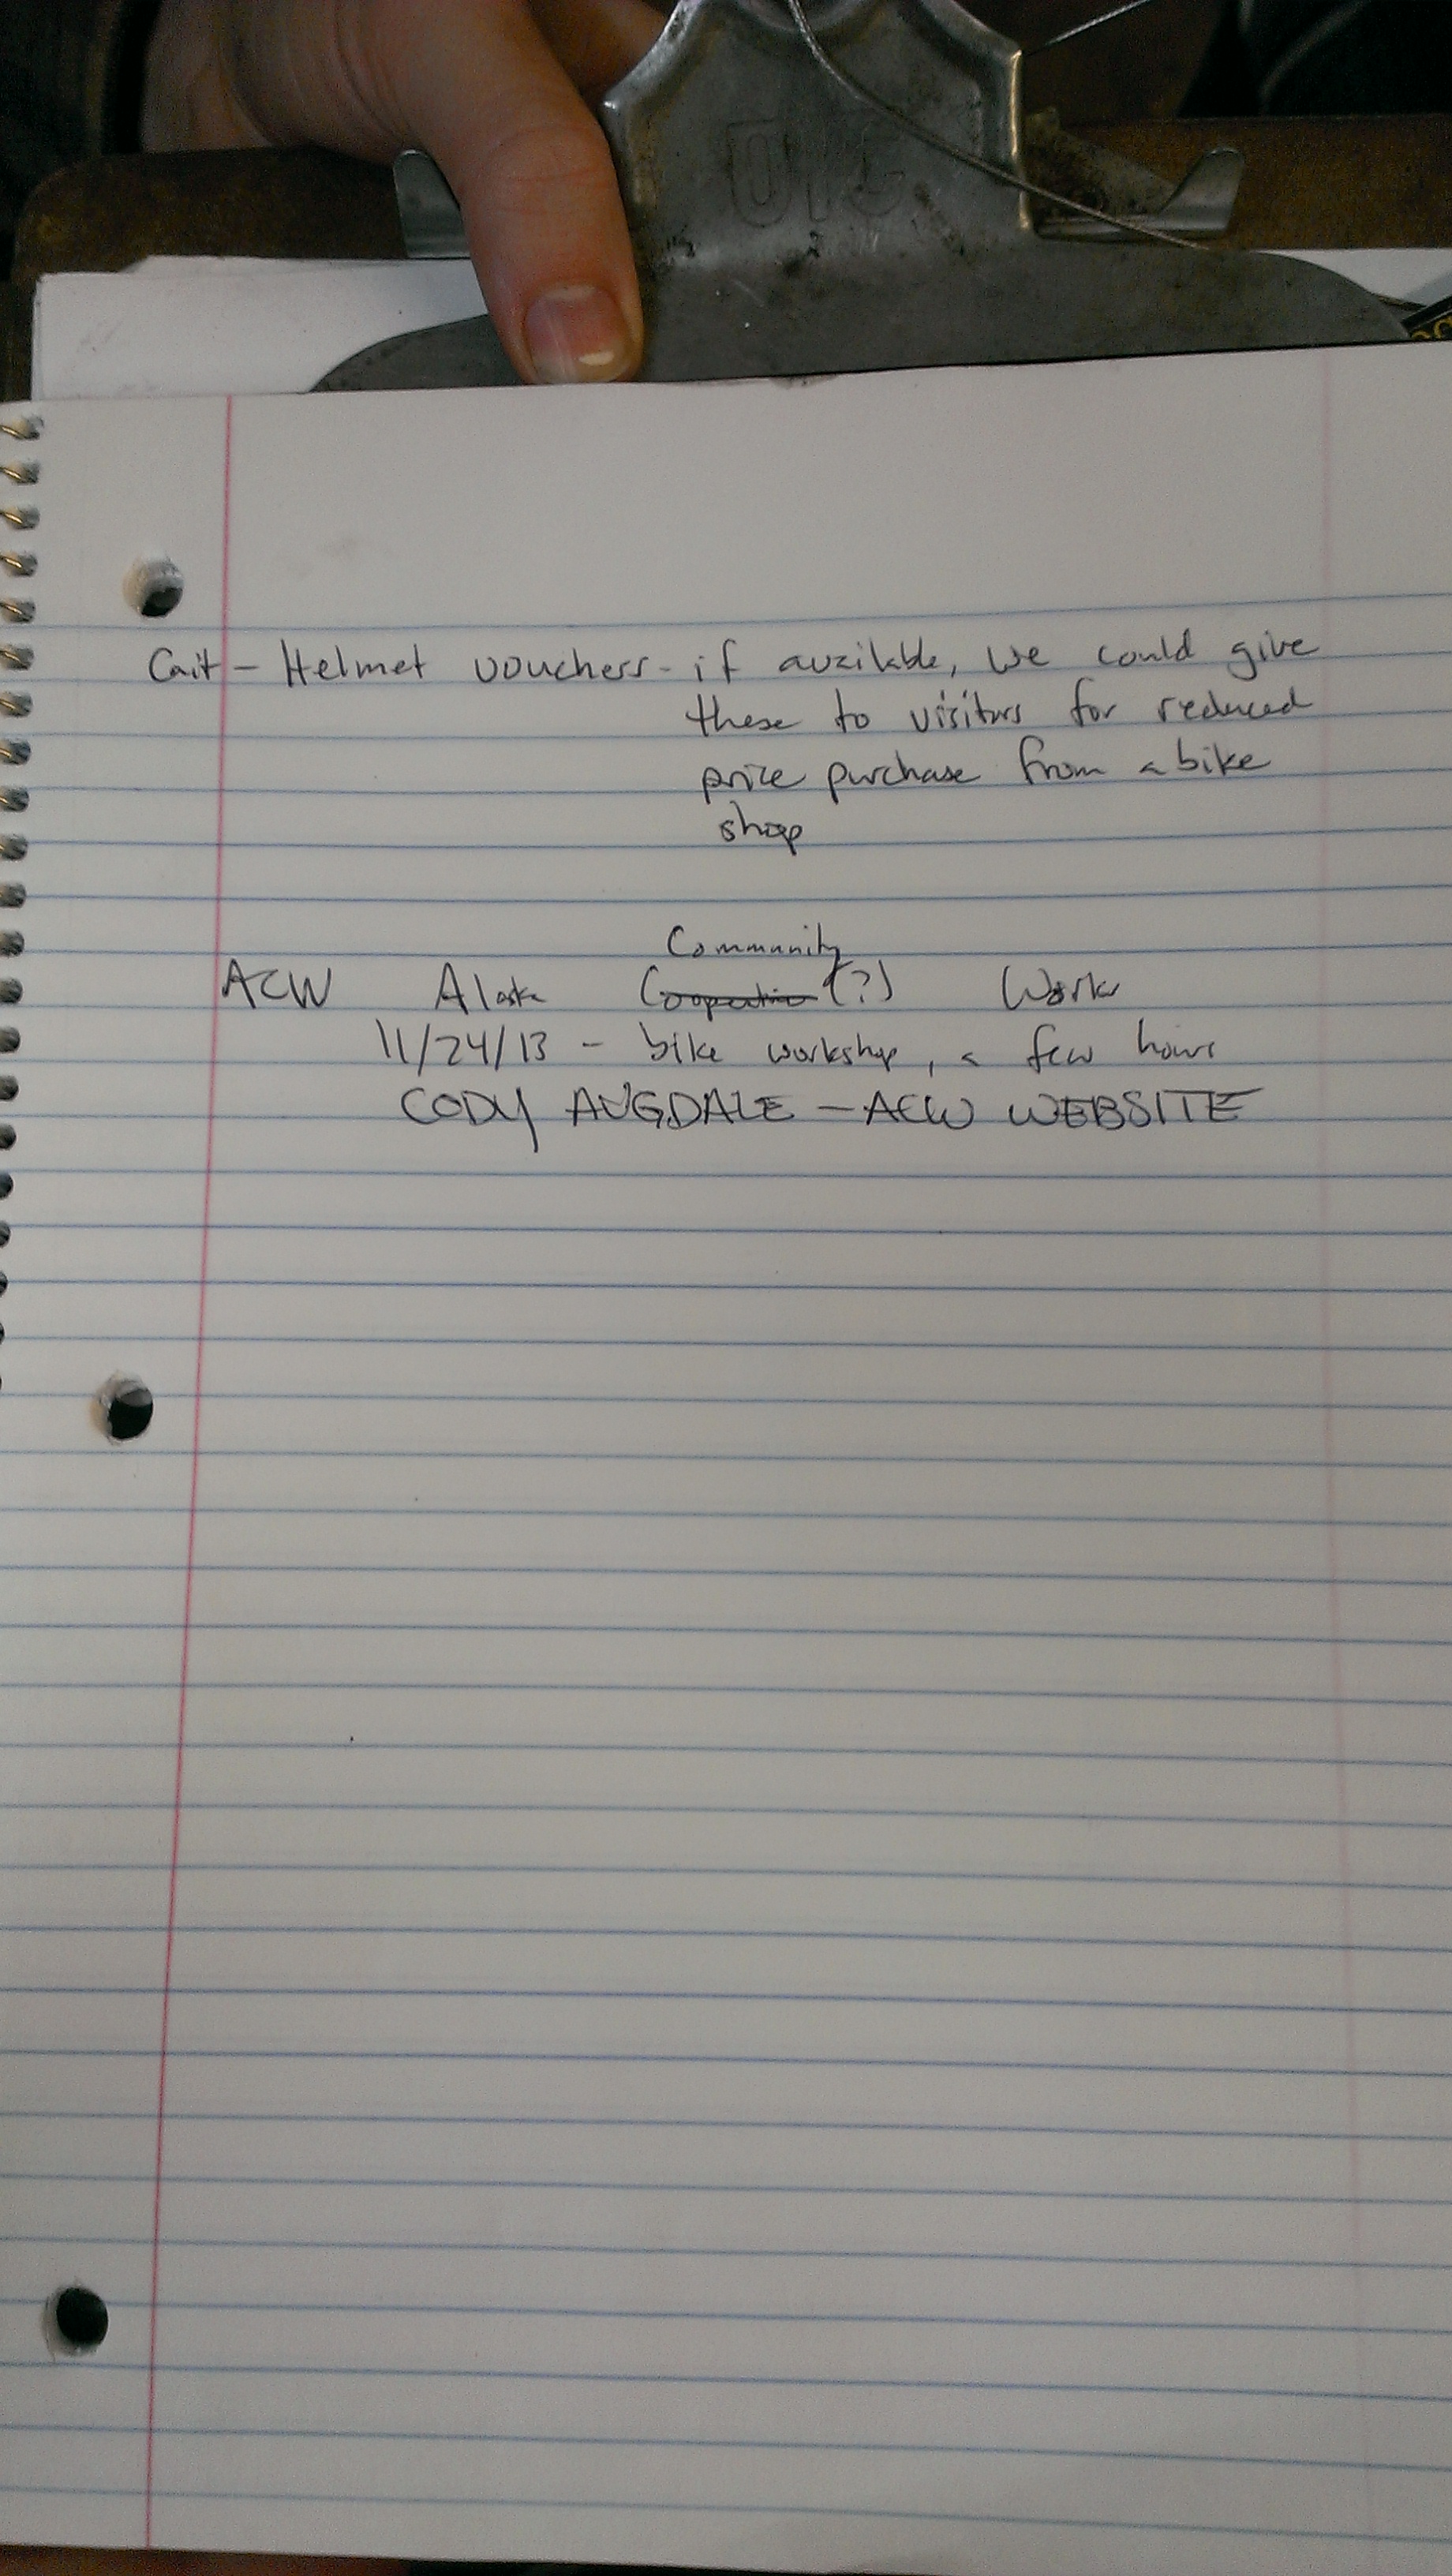 OIC
Cait - Helmet vouchers - if available, we could give
these to visitors for reduced
price purchase from a bike
shop
Community
ACW Alaska Cooperative (?) Works
11/24/13 - bike workshop, a few hours
CODY AUGDALE - ACW WEBSITE